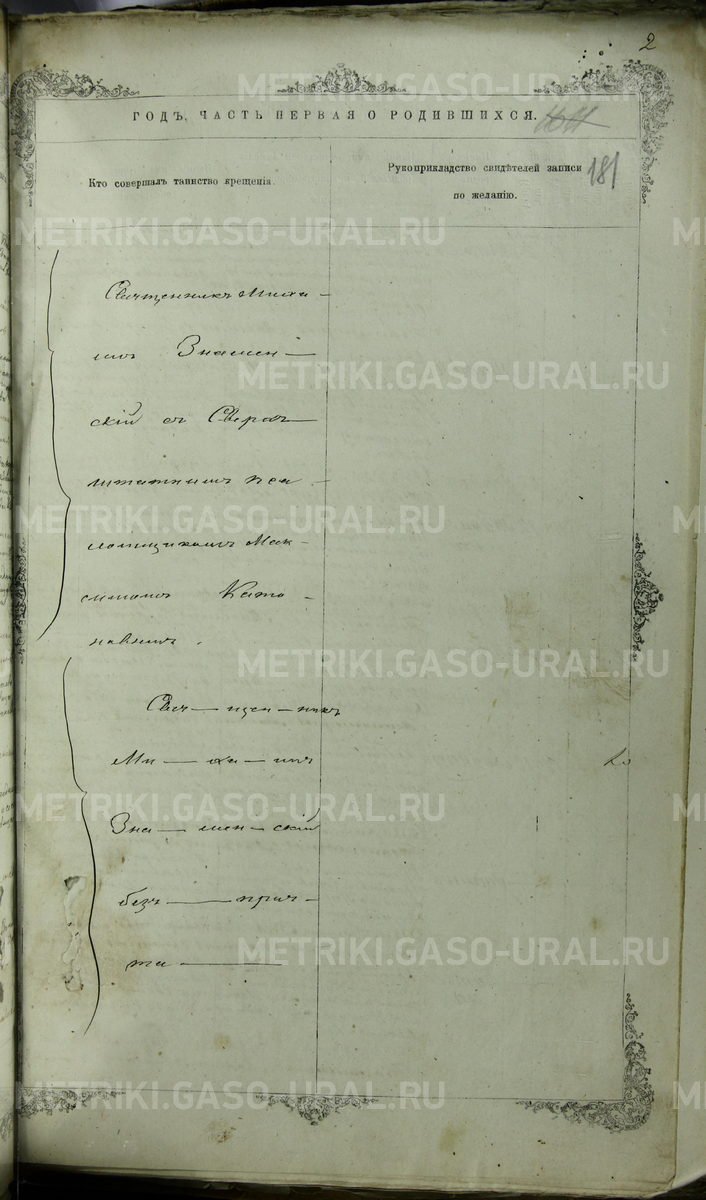 2
ГОДЪ, ЧАСТЬ ПЕРВАЯ О РОДИВШИХСЯ.
181
Кто совершалъ таинство крещенія.
Рукоприкладство свидѣтелей записи
по желанію.
Священникъ Миха-
илъ Знамен-
скій съ Сверхъ-
штатнымъ пса-
ломщикомъ Мак-
симомъ Като-
новымъ.
Свя-щен-никъ
Ми-ха-илъ
Зна-мен-скій
безъ прич-
та
METRIKI.GASO-URAL.RU
METRIKI.GASO-URAL.RU
METRIKI.GASO-URAL.RU
METRIKI.GASO-URAL.RU
METRIKI.GASO-URAL.RU
METRIKI.GASO-URAL.RU
METRIKI.GASO-URAL.RU
METRIKI.GASO-URAL.RU